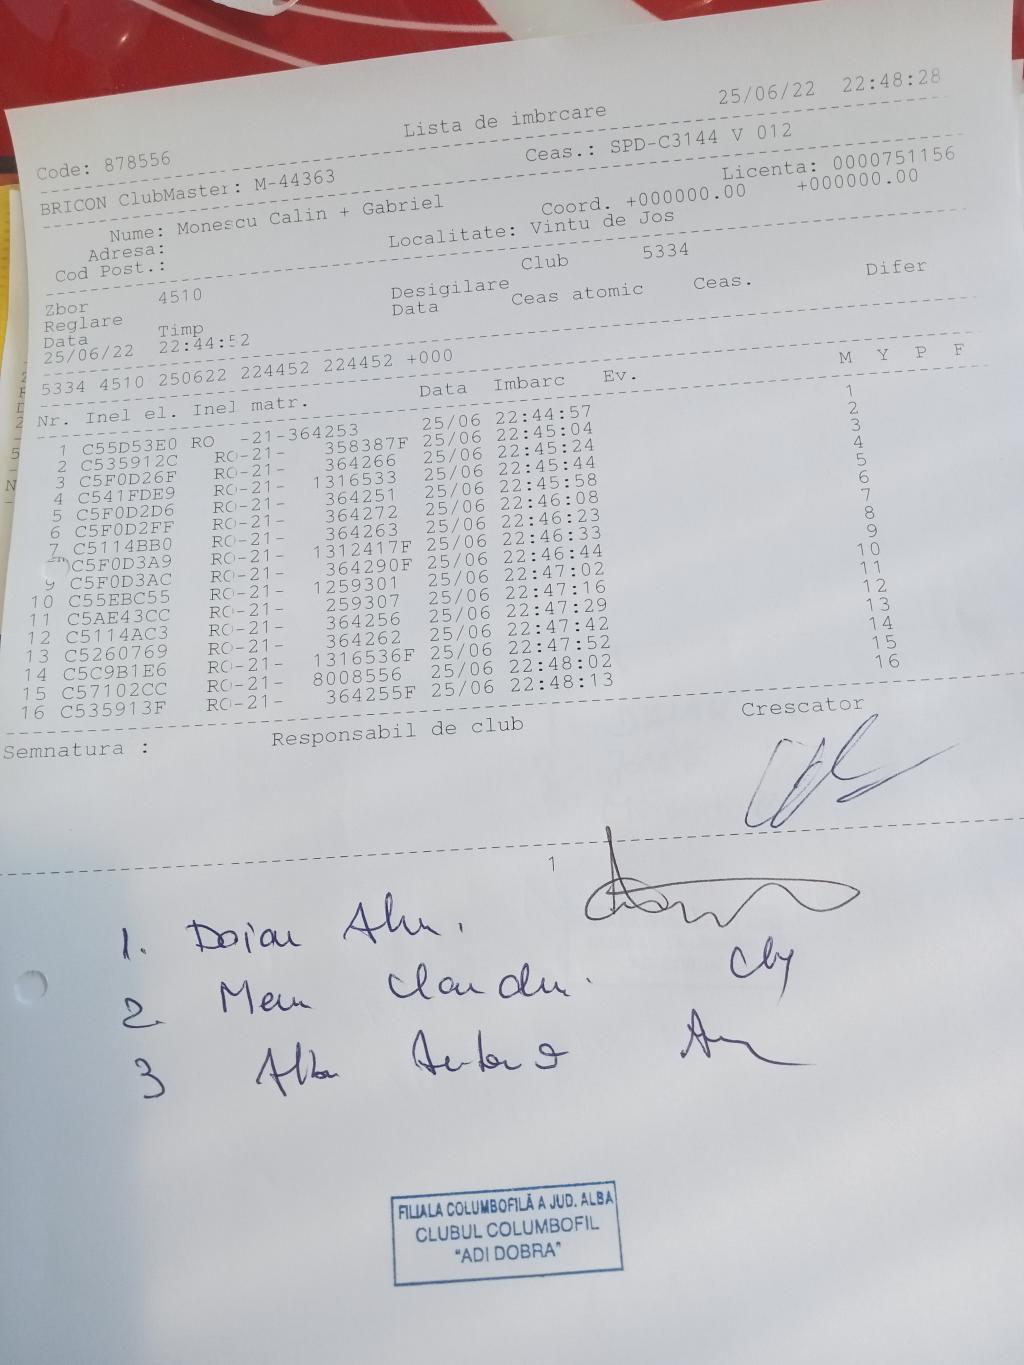 Lista de imbrcare 25/06/22 22:48:28
Code: 878556 Ceas.: SPD-C3144 V 012
BRICON ClubMaster: M-44363 Licenta: 0000751156
Nume: Monescu Calin + Gabriel Coord. +000000.00 +000000.00
Adresa:
Cod Post.: Localitate: Vintu de Jos
Club 5334
Zbor 4510 Desigilare
Reglare Data Ceas atomic Ceas. Difer
Data Timp
25/06/22 22:44:52
5334 4510 250622 224452 224452 +000
Nr. Inel el. Inel matr. Data Imbarc Ev. M Y P F
1 C55D53E0 RO -21-364253 25/06 22:44:57 1
2 C535912C RO-21- 358387F 25/06 22:45:04 2
3 C5F0D26F RO-21- 364266 25/06 22:45:24 3
4 C541FDE9 RO-21- 1316533 25/06 22:45:44 4
5 C5F0D2D6 RO-21- 364251 25/06 22:45:58 5
6 C5F0D2FF RO-21- 364272 25/06 22:46:08 6
7 C5114BB0 RO-21- 364263 25/06 22:46:23 7
C5F0D3A9 RO-21- 1312417F 25/06 22:46:33 8
9 C5F0D3AC RO-21- 364290F 25/06 22:46:44 9
10 C55EBC55 RO-21- 1259301 25/06 22:47:02 10
11 C5AE43CC RO-21- 259307 25/06 22:47:16 11
12 C5114AC3 RO-21- 364256 25/06 22:47:29 12
13 C5260769 RO-21- 364262 25/06 22:47:42 13
14 C5C9B1E6 RO-21- 1316536F 25/06 22:47:52 14
15 C57102CC RO-21- 8008556 25/06 22:48:02 15
16 C535913F RO-21- 364255F 25/06 22:48:13 16
Semnatura : Responsabil de club Crescator
1
1. Doian
2.
3
FILIALA COLUMBOFILĂ A JUD. ALBA
CLUBUL COLUMBOFIL
"ADI DOBRA"